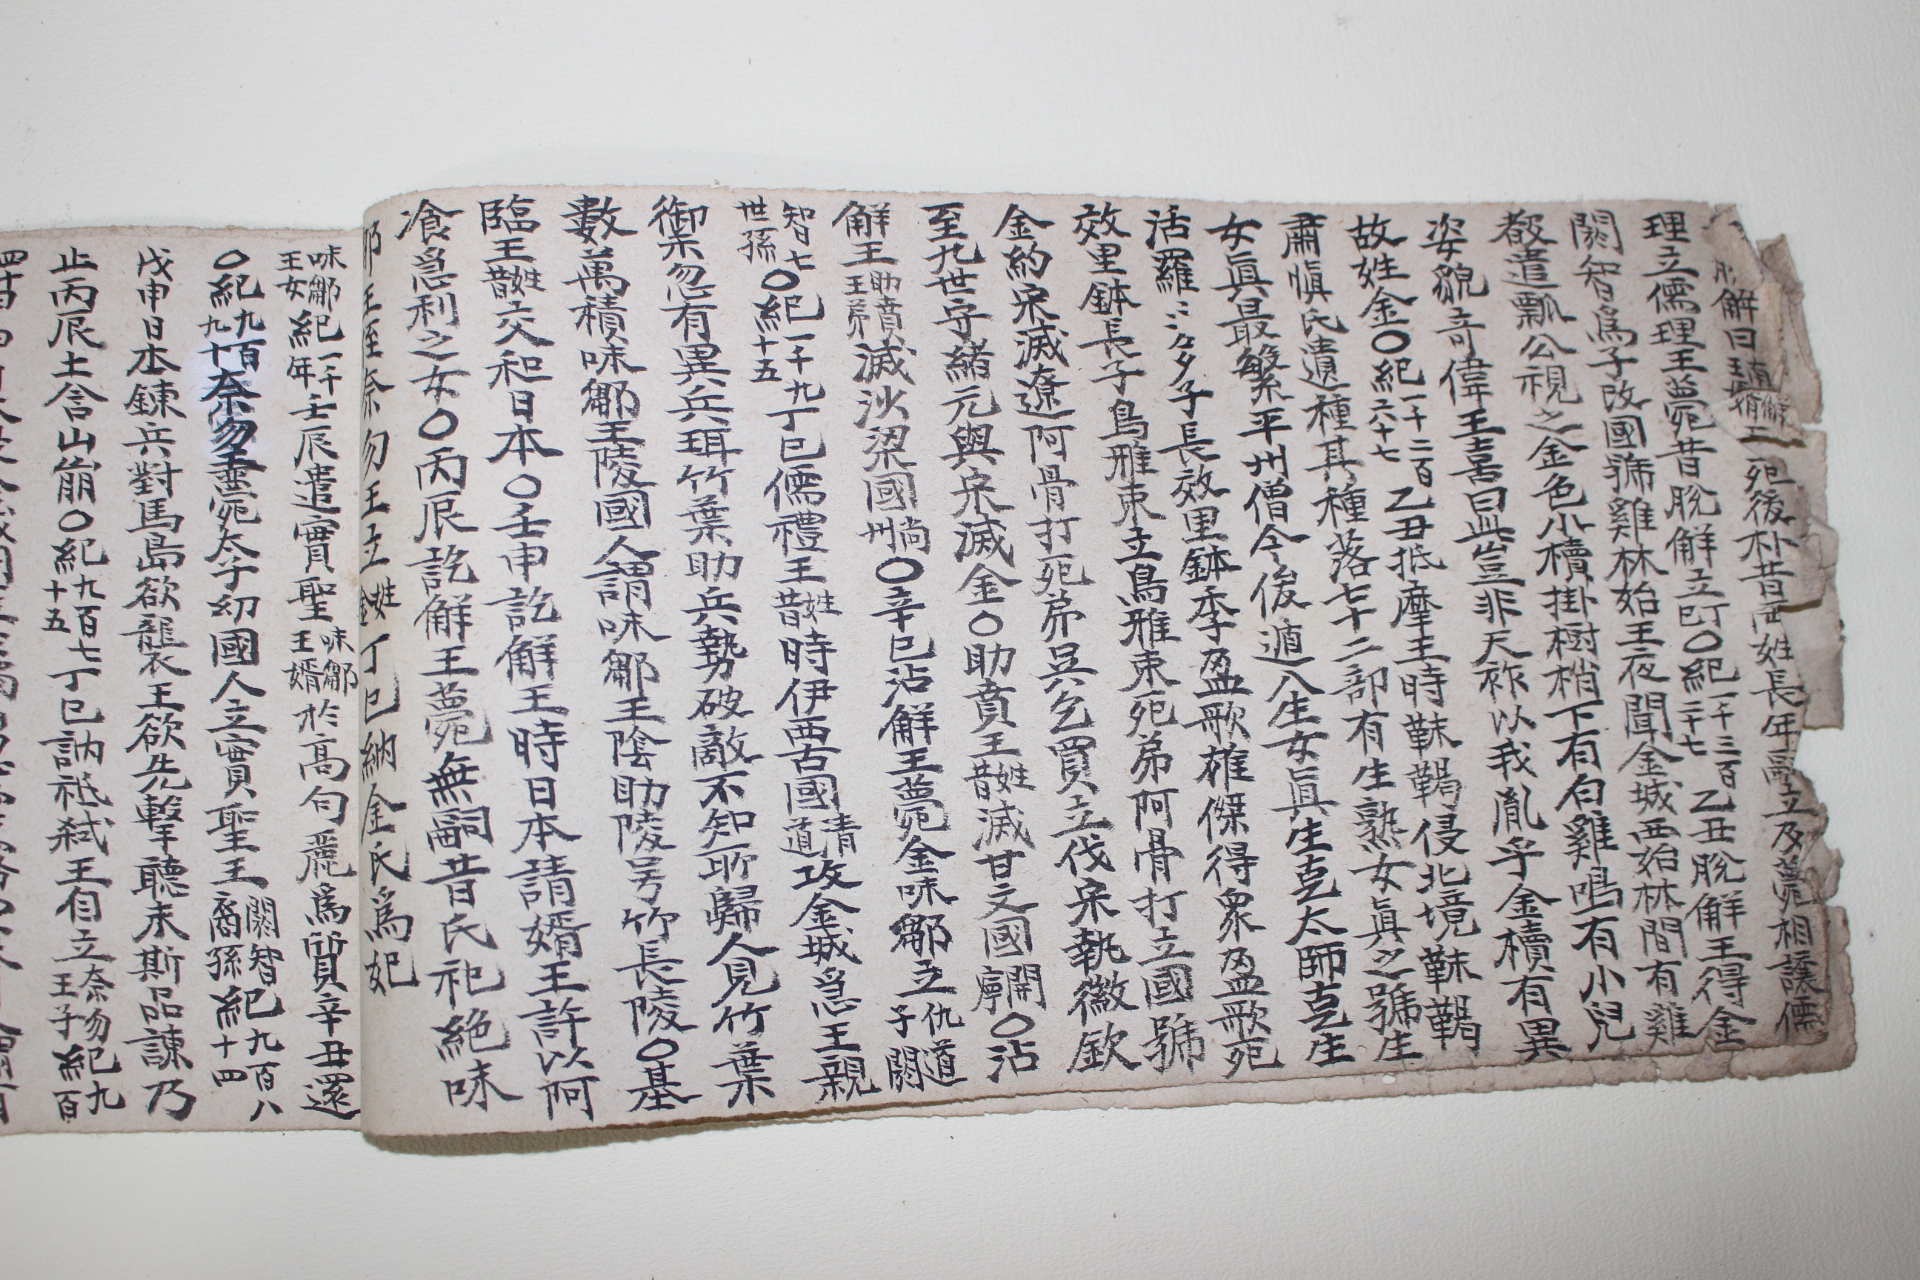 解曰
死後朴昔両姓長年嗣立及薨相讓儒
理立儒理王薨昔脫解立丁巳〇紀一千三百二十七乙丑脫解王得金
閼智爲子改國號雞林始王夜聞金城西始林間有雞
聲遣瓢公視之金色小櫝掛樹梢下有白雞鳴有小兒
姿貌奇偉王喜曰此豈非天祚以我胤乎金櫝有異
故姓金〇紀一千二百六十七乙丑抵摩王時靺鞨侵北境靺鞨
肅愼氏遺種其種落七十二部有生熟女眞之號生
女眞最繁平州僧今俊遁入生女眞生克太師克生
活羅ミミ夕子長效里鉢季盈歌雄傑得眾盈歌死
效里鉢長子烏雅束立烏雅束死弟阿骨打立國號
金約宋滅遼阿骨打死弟吳乞買立伐宋執徽欽
至九世守緖元與宋滅金〇助賁王昔姓滅甘文國開寧〇沾
解王助賁王弟滅沙梁國尙州〇辛巳沾解王薨金味鄒立仇道子閼
智七世孫〇紀一千九十五丁巳儒禮王昔姓時伊西古國淸道攻金城急王親
御禦忽有異兵珥竹葉助兵勢破敵不知所歸人見竹葉
數萬積味鄒王陵國人謂味鄒王陰助陵号竹長陵〇基
臨王昔姓交和日本〇壬申訖解王時日本請婿王許以阿
飡急利之女〇丙辰訖解王薨無嗣昔氏祀絶味
鄒王姪奈勿王立金姓丁巳納金氏爲妃
味鄒王女紀一千年壬辰遣實聖味鄒王婿於高句麗爲質辛丑還
〇紀九百九十奈勿王薨太子幼國人立實聖王閼智裔孫紀九百八十四
戊申日本鍊兵對馬島欲襲王欲先擊聽未斯品諫乃
止丙辰土含山崩〇紀九百七十五丁巳訥祗弑王自立奈勿王子紀九百